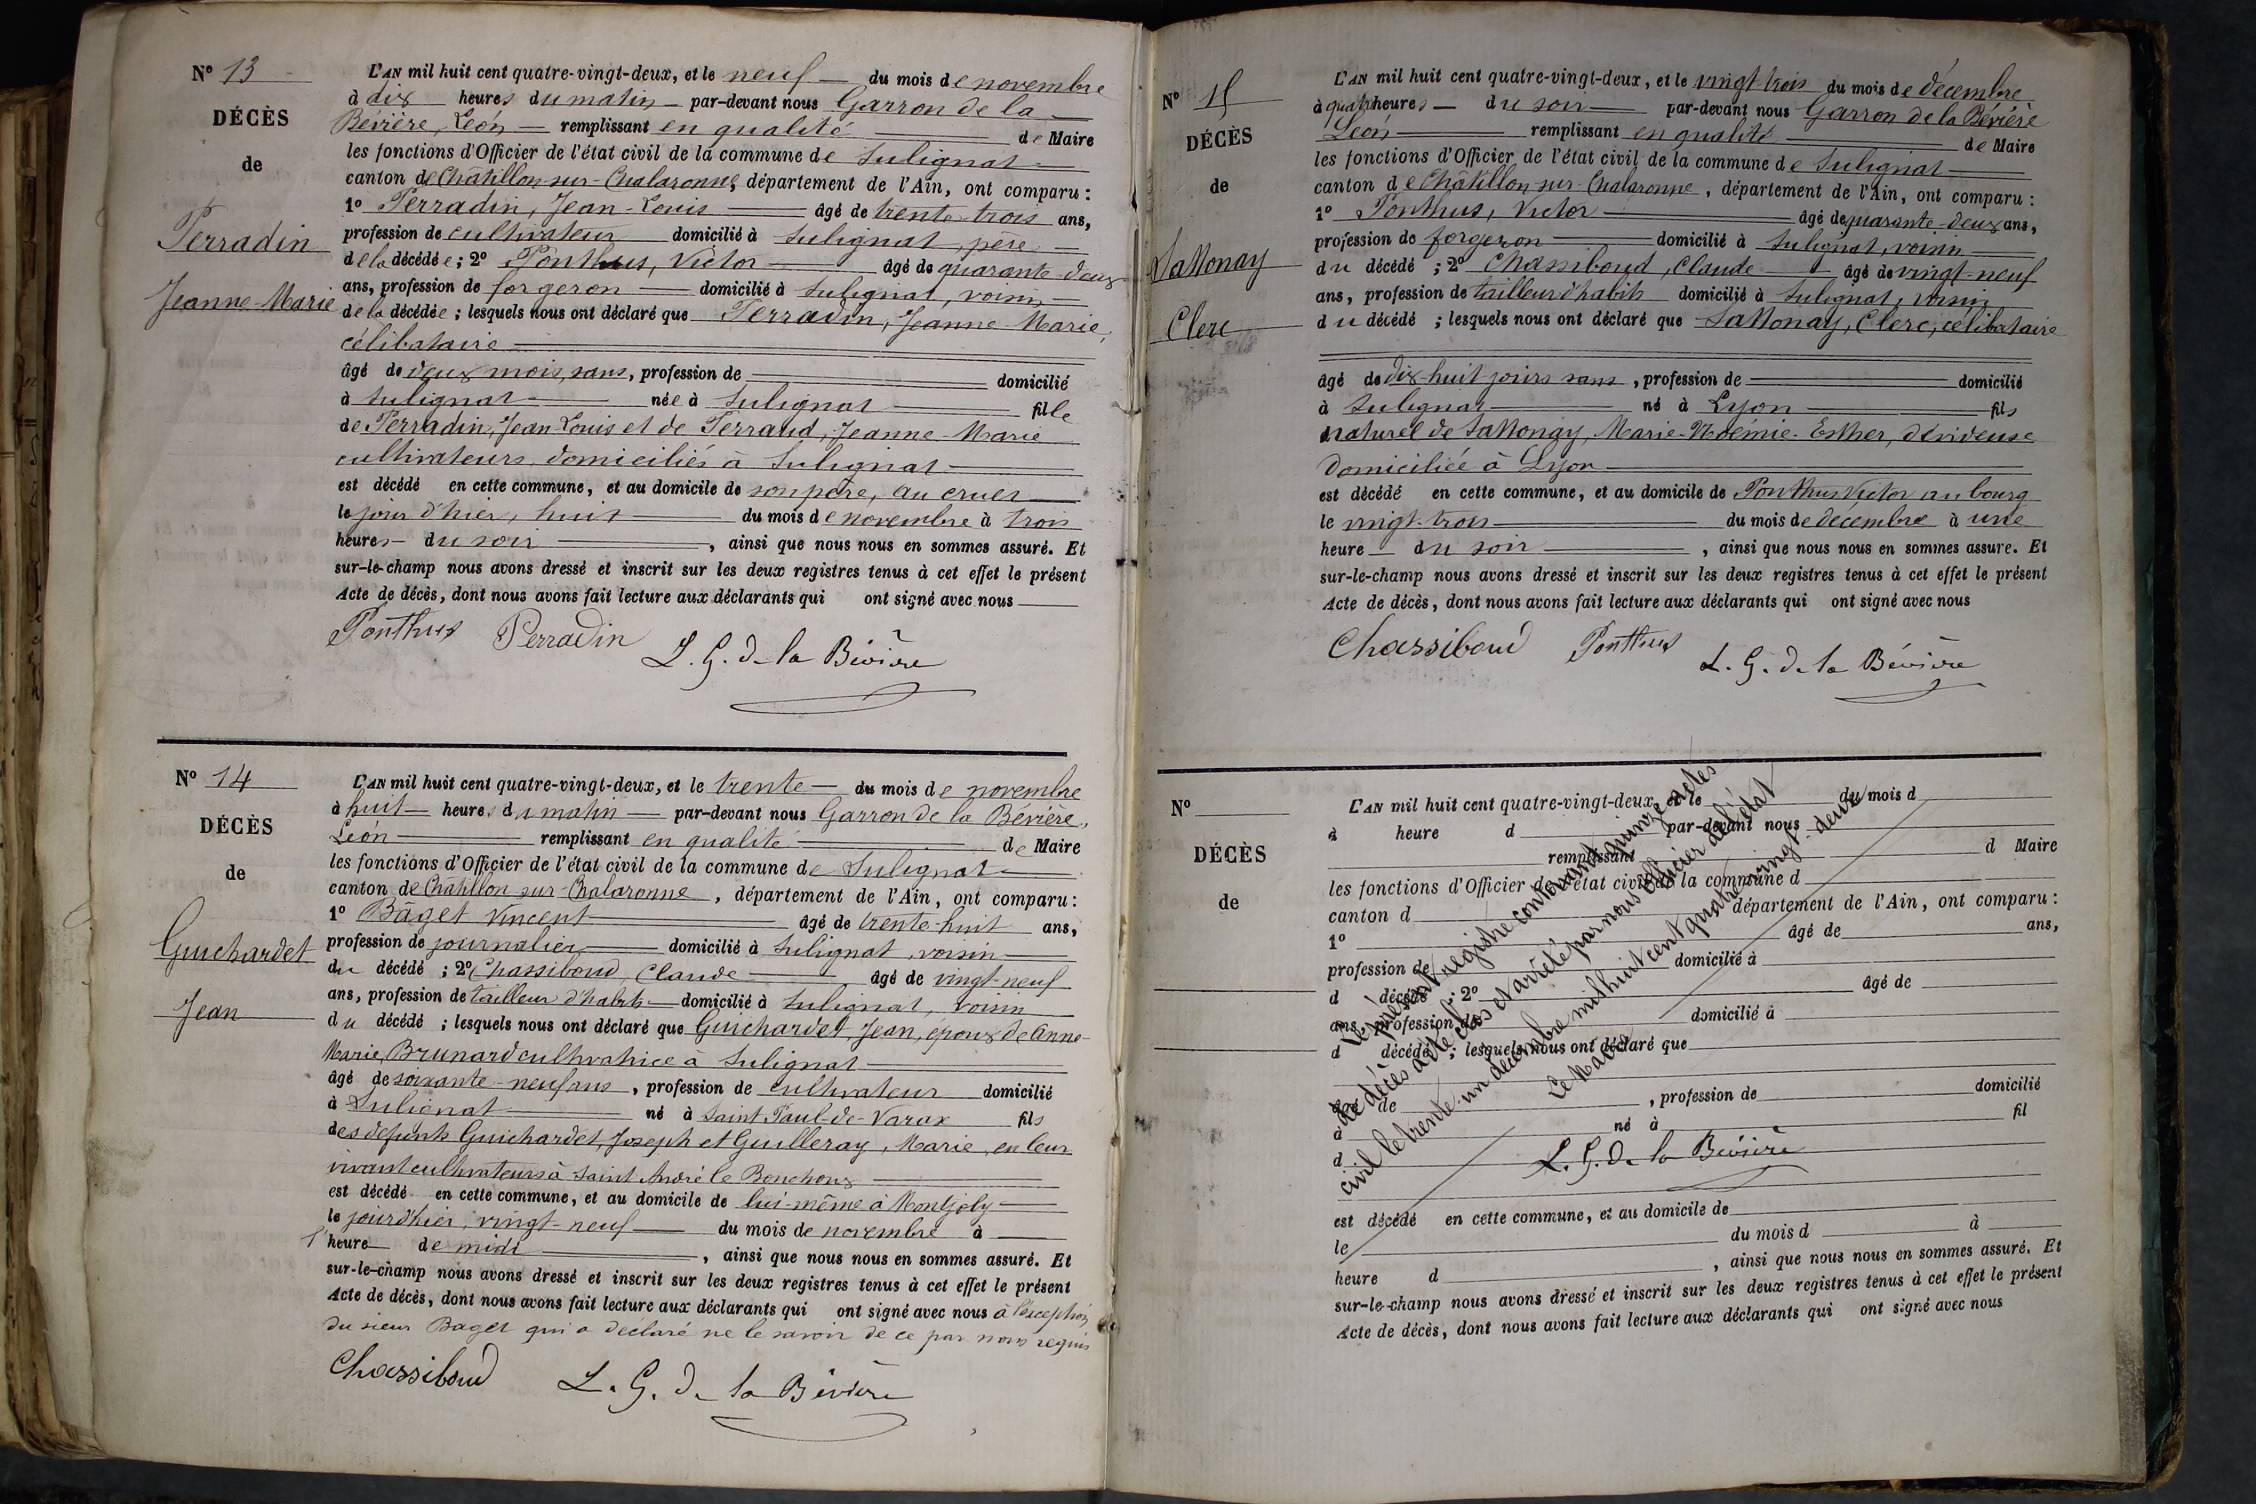 N° 13
DÉCÈS
de
Perradin
Jeanne-Marie
L'AN mil huit cent quatre-vingt-deux, et le neuf du mois de novembre
à dix heures du matin par-devant nous Garron de la
Bévière, Léon remplissant en qualité de Maire
les fonctions d'Officier de l'état civil de la commune de Sulignat
canton de Châtillon-sur-Chalaronne, département de l'Ain, ont comparu :
1° Perradin, Jean-Louis âgé de trente-trois ans,
profession de cultivateur domicilié à Sulignat, père
de la décédée ; 2° Ponthus, Victor âgé de quarante-deux
ans, profession de forgeron domicilié à Sulignat, voisin
de la décédée ; lesquels nous ont déclaré que Perradin, Jeanne-Marie,
célibataire
âgé de deux mois, sans, profession de domicilié
à Sulignat née à Sulignat fille
de Perradin, Jean Louis et de Perraud, Jeanne-Marie
cultivateurs domiciliés à Sulignat
est décédé en cette commune, et au domicile de son père, au
le jour d'hier, huit du mois de novembre à trois
heures du soir, ainsi que nous nous en sommes assuré. Et
sur-le-champ nous avons dressé et inscrit sur les deux registres tenus à cet effet le présent
Acte de décès, dont nous avons fait lecture aux déclarants qui ont signé avec nous
Ponthus Perradin L. G. de la Bévière
N° 14
DÉCÈS
de
Guichardet
Jean
L'AN mil huit cent quatre-vingt-deux, et le trente du mois de novembre
à huit heures du matin par-devant nous Garron de la Bévière,
Léon remplissant en qualité de Maire
les fonctions d'Officier de l'état civil de la commune de Sulignat
canton de Châtillon sur-Chalaronne, département de l'Ain, ont comparu :
1° Bâget Vincent âgé de trente-huit ans,
profession de journalier domicilié à Sulignat, voisin
du décédé ; 2° Chassiboud Claude âgé de vingt-neuf
ans, profession de tailleur d'habits domicilié à Sulignat, voisin
du décédé ; lesquels nous ont déclaré que Guichardet, Jean, époux de Anne-
Marie Brunard cultivatrice à Sulignat
âgé de soixante-neuf ans, profession de cultivateur domicilié
à Sulignat né à Saint Paul-de-Varax fils
des défunts Guichardet, Joseph et Guilleray, Marie, en leur
vivant cultivateurs à Saint André le Bouchoux
est décédé en cette commune, et au domicile de lui-même à Montjoly
le jour d'hier, vingt-neuf du mois de novembre à
l'heure de midi, ainsi que nous nous en sommes assuré. Et
sur-le-champ nous avons dressé et inscrit sur les deux registres tenus à cet effet le présent
Acte de décès, dont nous avons fait lecture aux déclarants qui ont signé avec nous à l'exception
du sieur Baget qui a déclaré ne le savoir de ce par nous requis
Chassiboud L. G. de la Bévière
N° 15
DÉCÈS
de
Sattonay
Clerc
L'AN mil huit cent quatre-vingt-deux, et le vingt-trois du mois de décembre
à quatre heures du soir par-devant nous Garron de la Bévière
Léon remplissant en qualité de Maire
les fonctions d'Officier de l'état civil de la commune de Sulignat
canton de Châtillon sur-Chalaronne, département de l'Ain, ont comparu :
1° Ponthus, Victor âgé de quarante-deux ans,
profession de forgeron domicilié à Sulignat, voisin
du décédé ; 2° Chassiboud, Claude âgé de vingt-neuf
ans, profession de tailleur d'habits domicilié à Sulignat, voisin
du décédé ; lesquels nous ont déclaré que Sattonay, Clerc, célibataire
âgé de dix-huit jours sans, profession de domicilié
à Sulignat né à Lyon fils
naturel de Sattonay, Marie-Noémie-Esther, dévideuse
domiciliée à Lyon
est décédé en cette commune, et au domicile de Ponthus Victor au bourg
le vingt-trois du mois de décembre à une
heure du soir, ainsi que nous nous en sommes assuré. Et
sur-le-champ nous avons dressé et inscrit sur les deux registres tenus à cet effet le présent
Acte de décès, dont nous avons fait lecture aux déclarants qui ont signé avec nous
Chassiboud Ponthus L. G. de la Bévière
N°
DÉCÈS
de
L'AN mil huit cent quatre-vingt-deux, et le du mois d
à heure d par-devant nous
remplissant d Maire
les fonctions d'Officier de l'état civil de la commune d
canton d département de l'Ain, ont comparu :
1° âgé de ans,
profession de domicilié à
d décédé ; 2° âgé de
ans, profession de domicilié à
d décédé ; lesquels nous ont déclaré que
âgé de , profession de domicilié
à né à fil
d
est décédé en cette commune, et au domicile de
le du mois d à
heure d , ainsi que nous nous en sommes assuré. Et
sur-le-champ nous avons dressé et inscrit sur les deux registres tenus à cet effet le présent
Acte de décès, dont nous avons fait lecture aux déclarants qui ont signé avec nous
Le présent registre contenant quinze actes
de décès a été clos et arrêté par nous officier de l'état
civil le trente-un décembre mil huit cent quatre-vingt-deux
Le Maire
L. G. de la Bévière